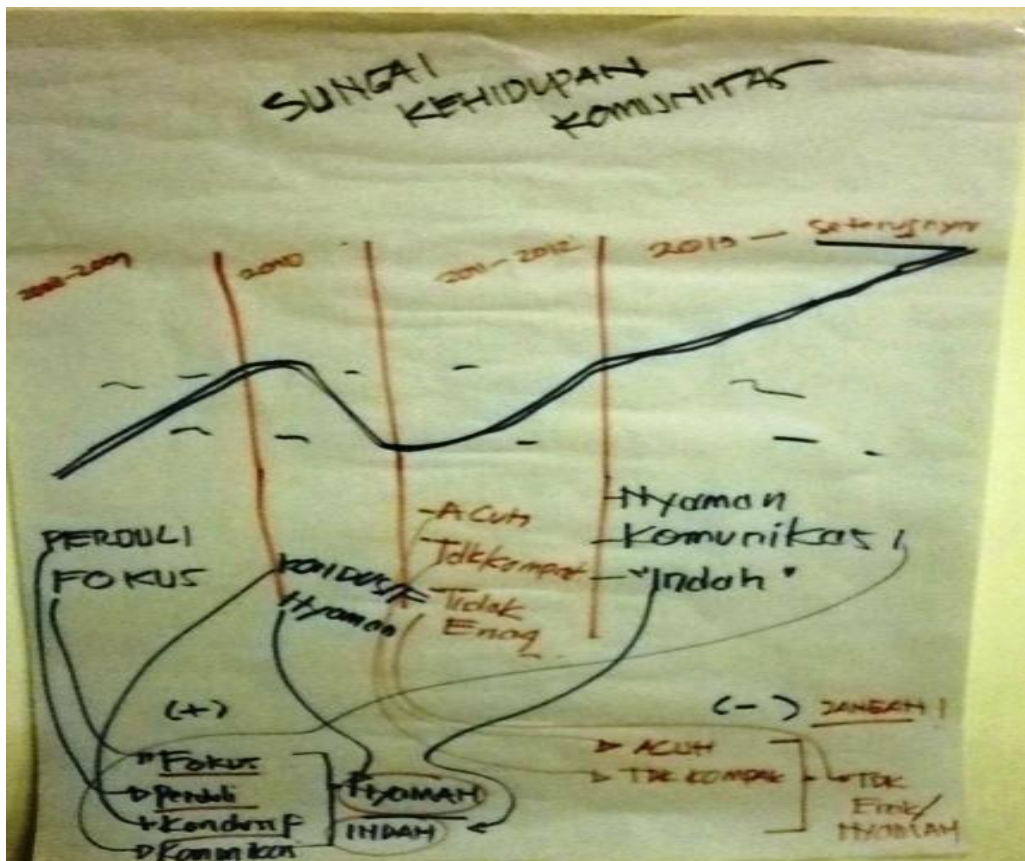 SUNGAI
KEHIDUPAN
KOMUNITAS
2010
2011-2012
2013 - Seterusnya
PERDULI
FOKUS
KONDUSIF
Nyaman
- ACUH
Tdk Kompak
- Tidak
Enaq
- Nyaman
- Komunikasi
- "Indah"
(+)
Fokus
Perduli
+ Kondusif
Komunikasi
NYAMAN
INDAH
(-) JANGAN!
ACUH
TDK KOMPAK
TDK
Enak/
NYAMAN